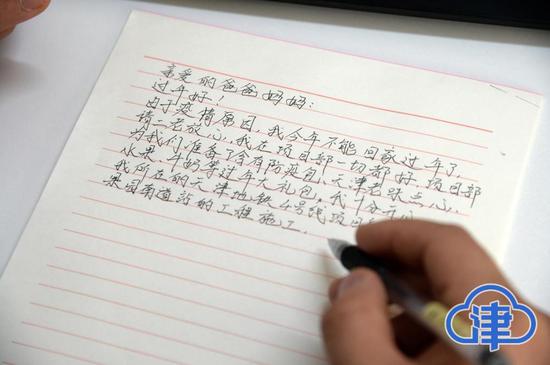 亲爱的爸爸妈妈：
过年好！
由于疫情原因，我今年不能回家过年了，
请二老放心，我在项目部一切都好，项目部
为我们准备了含有防疫包、天津老味点心、
水果、牛奶等过年大礼包，我十分开心。
我所在的天津地铁4号线项目
果园南道站的工程施工，
津